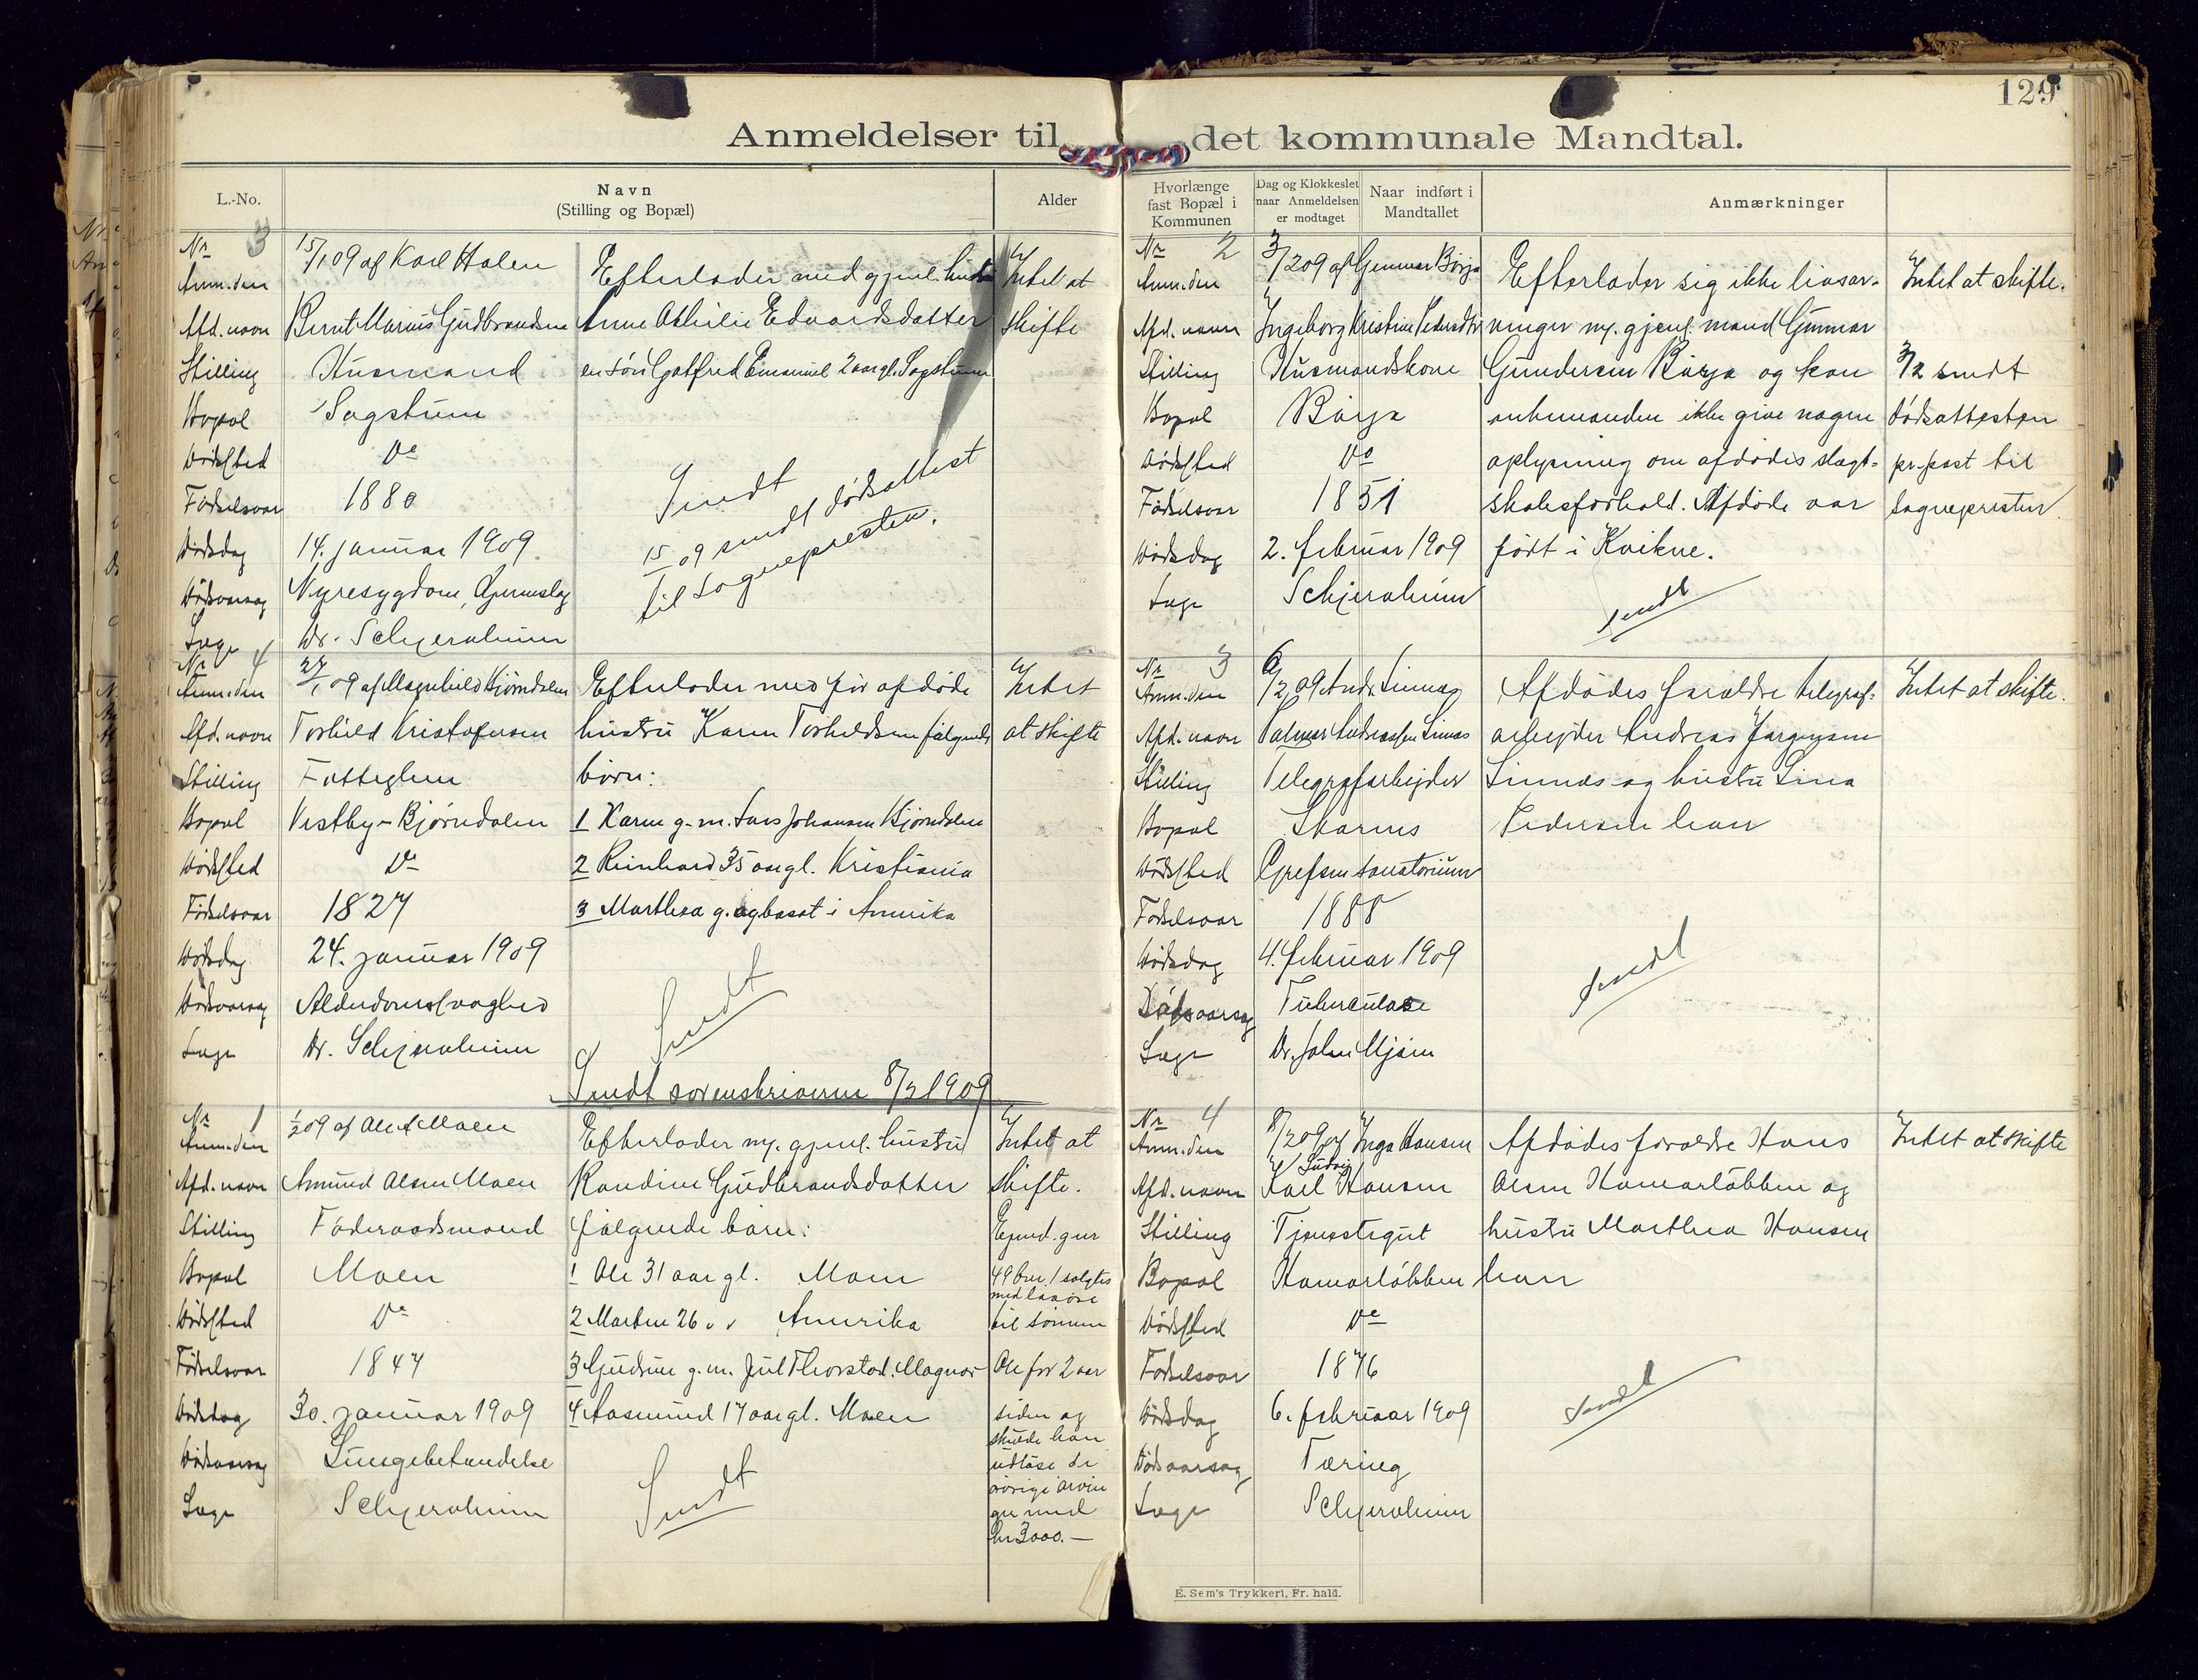 129
Anmeldelser til det kommunale Mandtal.
L.-No.
Navn
(Stilling og Bopæl)
Alder
Nr 3
Anm. den 15/1 09 af Karl Holen
Afd. navn Bernt Marius Gudbrandsen
Stilling Husmand
Bopæl Sagstuen
Dødsted Do
Fødselsaar 1880
Dødsdag 14. januar 1909.
Dødsaarsag Nyresygdom, Hjerneslag
Læge Dr. Schjerulm
Efterlader med gjenl. hustru
Anne Othilie Edvardsdatter
en søn Gotfred Emanuel 2 aar gl. Sagstuen
Sendt
15/1 09 sendt dødsattest
til Sognepresten.
Intet at
skifte
Nr 4
Anm. den 27/1 09 af Magnhild Bjørndalen
Afd. navn Torkild Kristofersen
Stilling Fattiglem
Bopæl Vestby - Bjørndalen
Dødsted Do
Fødselsaar 1827
Dødsdag 24. januar 1909
Dødsaarsag Alderdomssvaghed
Læge Dr. Schjerulm
Efterlader med før afdøde
hustru Karen Torkildsen følgende
børn:
1 Karen g. m. Lars Johansen Bjørndalen
2 Reinhard 35 aar gl. Kristiania
3 Marthea g. og bosat i Amerika
Sendt
Sendt sorenskriveren 8/2 1909
Intet
at skifte
Nr 1
Anm. den 1/2 09 af Ole A Moen
Afd. navn Amund Olsen Moen
Stilling Føderaadsmand
Bopæl Moen
Dødsted Do
Fødselsaar 1847
Dødsdag 30. januar 1909
Dødsaarsag Lungebetændelse
Læge Schjerulm
Efterlader sig gjenl. hustru
Randine Gudbrandsdatter
følgende børn:
1 Ole 31 aar gl. Moen
2 Marten 26 " " Amerika
3 Gudrun g. m. Jul Thorstad. Magnor
4 Aasmund 17 aar gl. Moen
Sendt
Intet at
skifte.
Ejend. gnr
49 bnr. 1 solgtes
med løsøre
til sønnen
Ole for 2 aar
siden og
skulde han
udløse de
øvrige arvin
ger med
kr 3000.—
Hvorlænge
fast Bopæl i
Kommunen
Dag og Klokkeslet
naar Anmeldelsen
er modtaget
Naar indført i
Mandtallet
Anmærkninger
Nr 2
Anm. den 3/2 09 af Gunnar Børja
Afd. navn Ingeborg Kristine Pedersdtr
Stilling Husmandskone
Bopæl Børja
Dødsted Do
Fødselsaar 1851
Dødsdag 2. februar 1909
Læge Schjerulm
Efterlader sig ikke livsar-
vinger m. gjenl. mand Gunnar
Gundersen Børja og kan
enkemanden ikke give nogen
oplysning om afdødes slægt-
skabsforhold. Afdøde var
født i Kvikne.
Sendt
Intet at skifte.
3/2 sendt
dødsattesten
pr. post til
sognepresten
Nr 3
Anm. den 6/2 09 Andr. Linnæs
Afd. navn Valmar Andreassen Linnæs
Stilling Telegrafarbejder
Bopæl Skarnes
Dødsted Grefsen sanatorium
Fødselsaar 1888
Dødsdag 4. februar 1909
Dødsaarsag Tuberculose
Læge Dr. John Mjøen
Afdødes forældre telegraf-
arbejder Andreas Jørgensen
Linnæs og hustru Lina
Pedersen lever
Sendt
Intet at skifte.
Nr 4
Anm. den 8/2 09 af Inga Hansen
Afd. navn Karl Ludvig Hansen
Stilling Tjenestegut
Bopæl Hamarløbben
Dødsted Do
Fødselsaar 1876
Dødsdag 6. februar 1909
Dødsaarsag Tæring
Læge Schjerulm
Afdødes forældre Hans
Olsen Hamarløbben og
hustru Marthea Hansen
lever
Sendt
Intet at skifte
E. Sem's Trykkeri, Fr. hald.